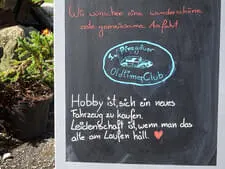 Wir wünschen eine wunderschöne
gemeinsame Ausfahrt
1. Pinzgauer
Oldtimer Club
Hobby ist, sich ein neues
Fahrzeug zu kaufen.
Leidenschaft ist, wenn man das
alte am Laufen hält.